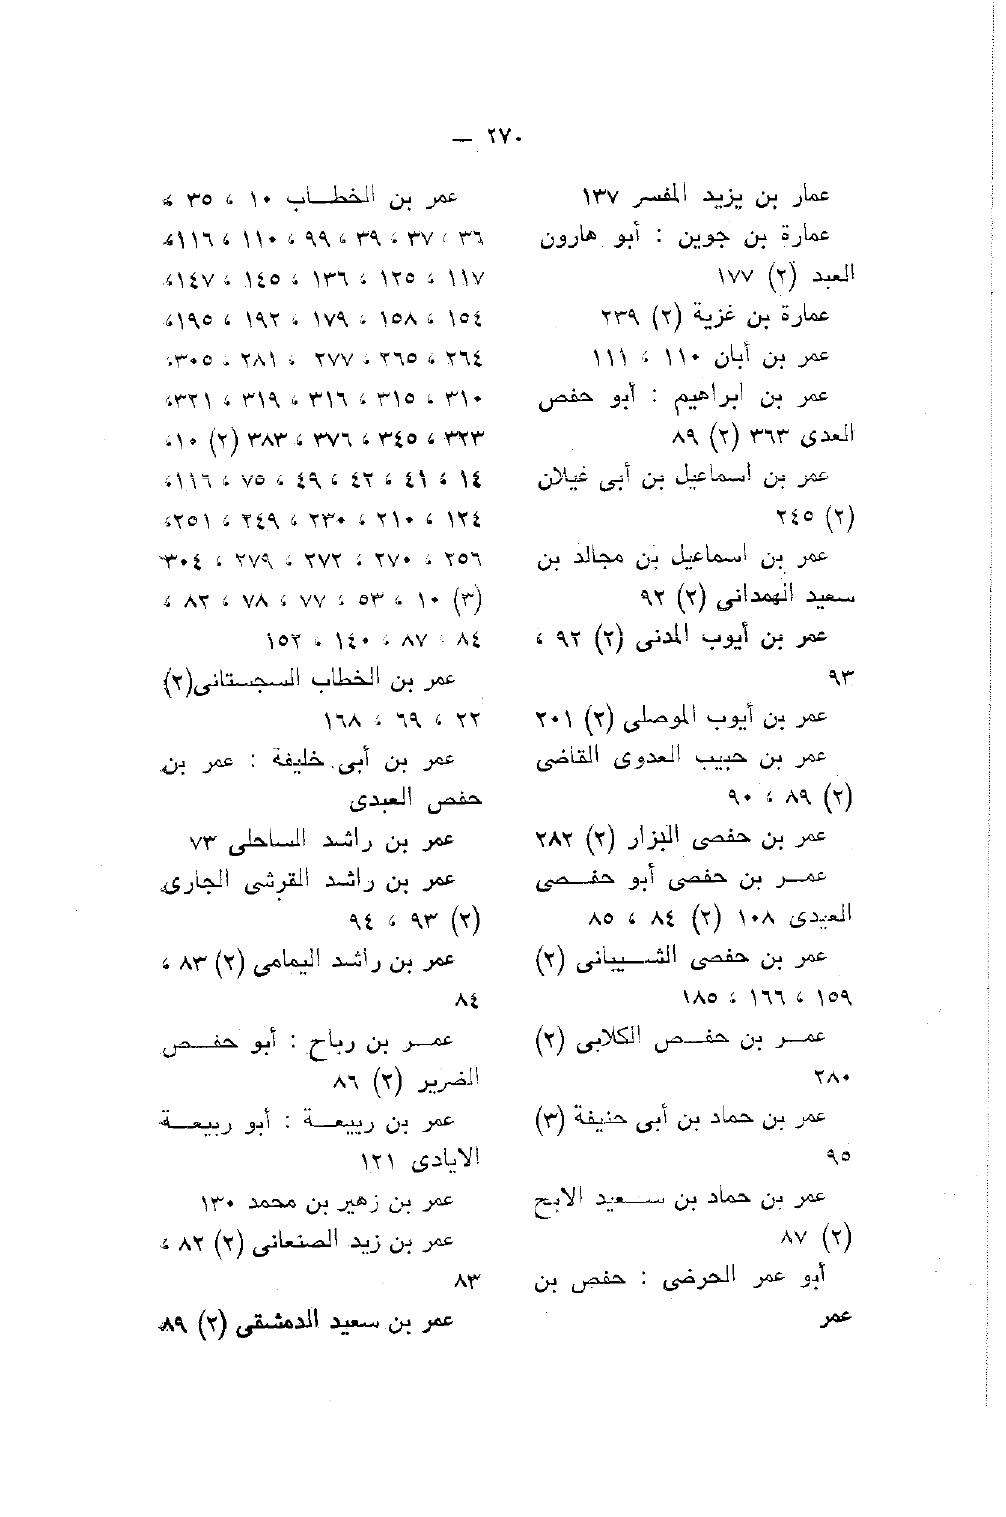 ٢٧٠ —
عمار بن يزيد المفسر ١٣٧
عمارة بن جوين : أبو هارون
العبد (٢) ١٧٧
عمارة بن غزية (٢) ٢٣٩
عمر بن أبان ١١٠ ، ١١١
عمر بن ابراهيم : أبو حفص
العدى ٣٦٣ (٢) ٨٩
عمر بن اسماعيل بن أبى غيلان
(٢) ٢٤٥
عمر بن اسماعيل بن مجالد بن
سعيد الهمدانى (٢) ٩٢
عمر بن أيوب المدنى (٢) ٩٢ ،
٩٣
عمر بن أيوب الموصلى (٢) ٢٠١
عمر بن حبيب العدوى القاضى
(٢) ٨٩ ، ٩٠
عمر بن حفصى البزار (٢) ٢٨٢
عمر بن حفصى أبو حفصى
العبدى ١٠٨ (٢) ٨٤ ، ٨٥
عمر بن حفصى الشيبانى (٢)
١٥٩ ، ١٦٦ ، ١٨٥
عمر بن حفص الكلابى (٢)
٢٨٠
عمر بن حماد بن أبى حنيفة (٣)
٩٥
عمر بن حماد بن سعيد الابح
(٢) ٨٧
أبو عمر الحرضى : حفص بن
عمر
عمر بن الخطاب ١٠ ، ٣٥ ،
٣٦ ، ٣٧ ، ٣٩ ، ٩٩ ، ١١٠ ، ١١٦،
١١٧ ، ١٢٥ ، ١٣٦ ، ١٤٥ ، ١٤٧،
١٥٤ ، ١٥٨ ، ١٧٩ ، ١٩٢ ، ١٩٥،
٢٦٤ ، ٢٦٥ ، ٢٧٧ ، ٢٨١ ، ٣٠٥،
٣١٠ ، ٣١٥ ، ٣١٦ ، ٣١٩ ، ٣٢١،
٣٢٣ ، ٣٤٥ ، ٣٧٦ ، ٣٨٣ (٢) ١٠،
١٤ ، ٤١ ، ٤٢ ، ٤٩ ، ٧٥ ، ١١٦،
١٢٤ ، ٢١٠ ، ٢٣٠ ، ٢٤٩ ، ٢٥١،
٢٥٦ ، ٢٧٠ ، ٢٧٢ ، ٢٧٩ ، ٣٠٤
(٣) ١٠ ، ٥٣ ، ٧٧ ، ٧٨ ، ٨٢ ،
٨٤ ، ٨٧ ، ١٤٠ ، ١٥٢
عمر بن الخطاب السجستانى(٢)
٢٢ ، ٦٩ ، ١٦٨
عمر بن أبى خليفة : عمر بن
حفص العبدى
عمر بن راشد الساحلى ٧٣
عمر بن راشد القرشى الجارى
(٢) ٩٣ ، ٩٤
عمر بن راشد اليمامى (٢) ٨٣ ،
٨٤
عمر بن رباح : أبو حفص
الضرير (٢) ٨٦
عمر بن ربيعة : أبو ربيعة
الايادى ١٢١
عمر بن زهير بن محمد ١٣٠
عمر بن زيد الصنعانى (٢) ٨٢ ،
٨٣
عمر بن سعيد الدمشقى (٢) ٨٩